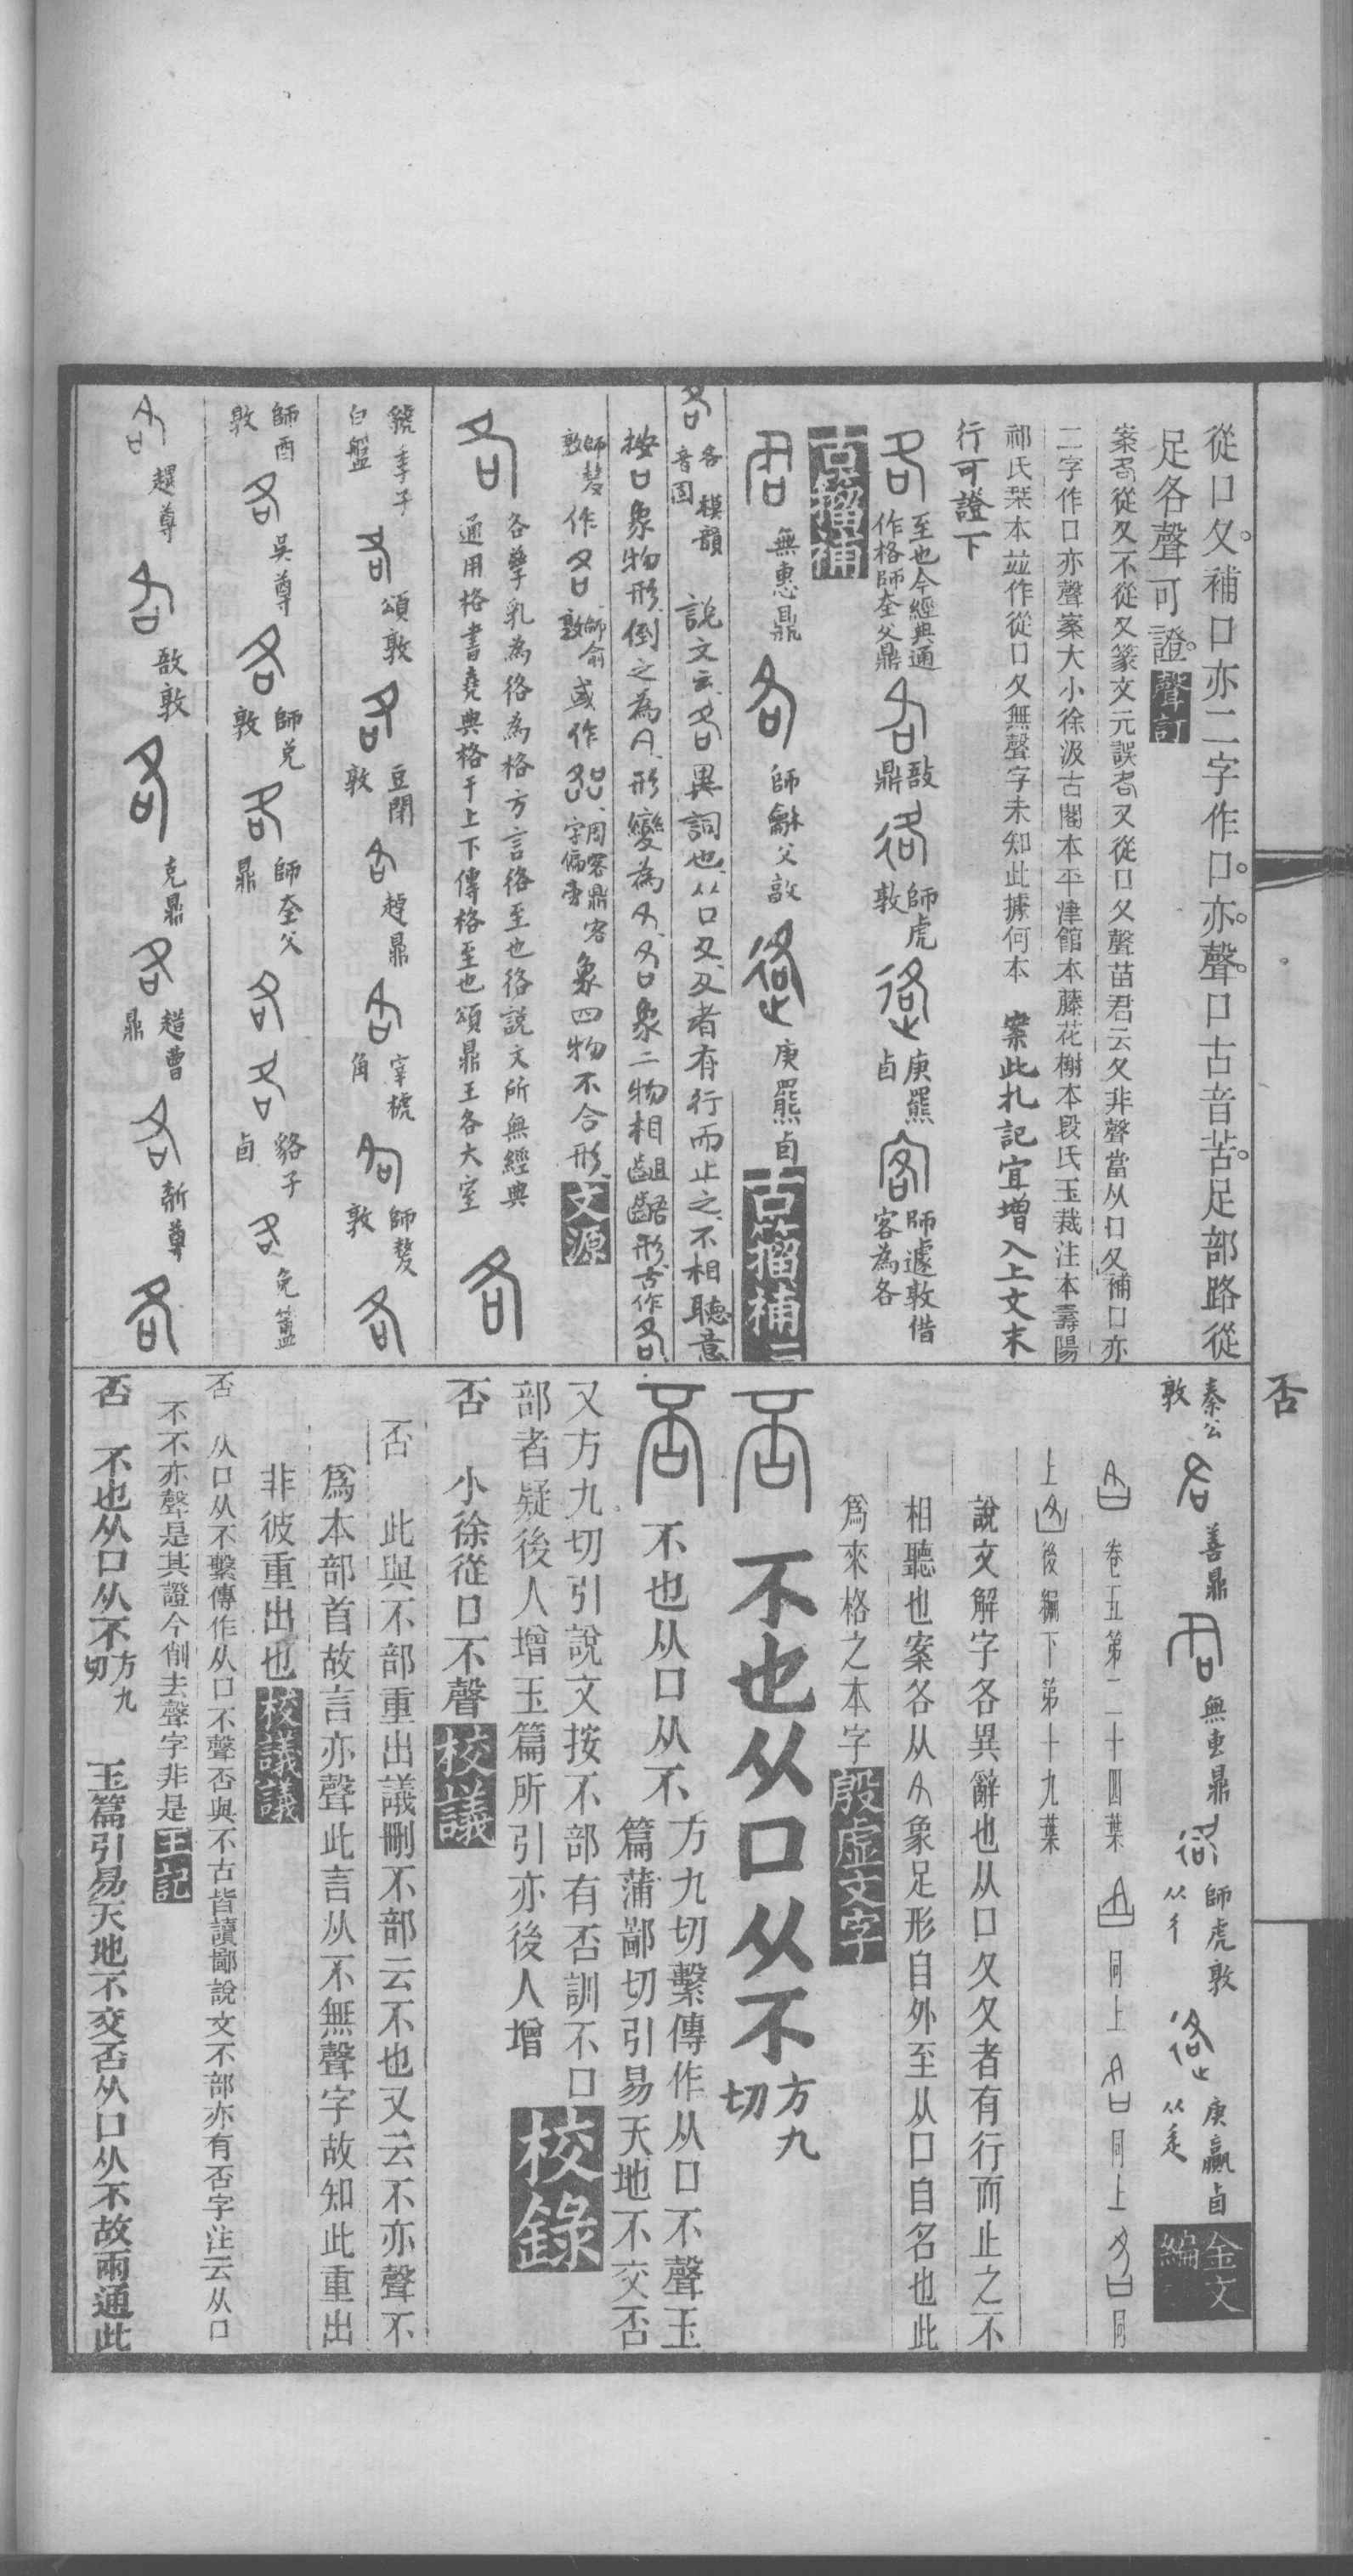 從口夂補口亦二字作口亦聲口古音苦足部路從
足各聲可證聲訂
案各從夂不從又篆文元誤者又從口夂聲苗君云夂非聲當从口夂補口亦
二字作口亦聲案大小徐汲古閣本平津館本藤花榭本段氏玉裁注本壽陽
祁氏栞本並作從口夂無聲字未知此據何本 案此札記宜增入上文末
行可證下
至也今經典通作格師奎父鼎
敔鼎
師虎敦
庚羆卣
師遽敦借客為各
古籀補
無惠鼎
師龢父敦
庚羆卣
古籀補
各 模韻
音固 說文云各異詞也从口夂夂者有行而止之不相聽意
按口象物形倒之為A形變為夂各象二物相齟齬形古作各
師嫠敦作各師俞敦或作 周客鼎客字偏旁象四物不合形文源
各孳乳為佫為格方言佫至也佫說文所無經典
通用格書堯典格于上下傳格至也頌鼎王各大室
虢季子白盤
頌敦
豆閉敦
趞鼎
宰椃角
師嫠敦
師酉敦
吳尊
師兌敦
師奎父鼎
貉子卣
免簠
趩尊
敔敦
克鼎
趞曹鼎
斱尊
否
秦公敦
善鼎
無叀鼎
師虎敦从彳
庚嬴卣从辵
金文編
卷五第二十四葉
同上
同上
同
上
後編下第十九葉
說文解字各異辭也从口夂夂者有行而止之不
相聽也案各从夂象足形自外至从口自名也此
爲來格之本字殷虛文字
否 不也从口从不方九切
否 不也从口从不 方九切繫傳作从口不聲玉
篇蒲鄙切引易天地不交否
又方九切引說文按不部有否訓不口
部者疑後人增玉篇所引亦後人增校錄
否 小徐從口不聲校議
否 此與不部重出議刪不部云不也又云不亦聲不
爲本部首故言亦聲此言从不無聲字故知此重出
非彼重出也校議議
否 从口从不繫傳作从口不聲否與不古皆讀鄙說文不部亦有否字注云从口
不不亦聲是其證今削去聲字非是王記
否 不也从口从不方九切 玉篇引易天地不交否从口从不故兩通此